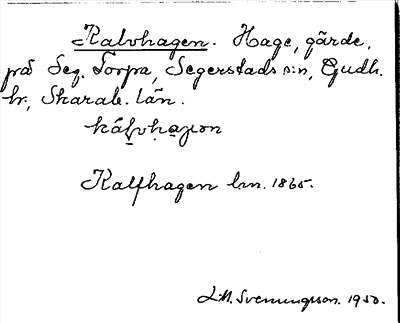 Kalvhagen. Hage, gärde,
på Seg. Torpa, Segerstads s:n, Gudh.
hr, Skarab. län.
Kalfhagen lm. 1865.
L.M. Svenungsson. 1950.